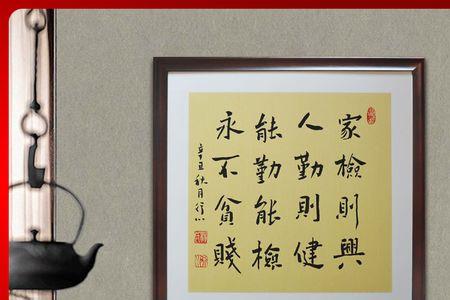 家檢則興
人勤則健
能勤能檢
永不貧賤
辛丑秋月